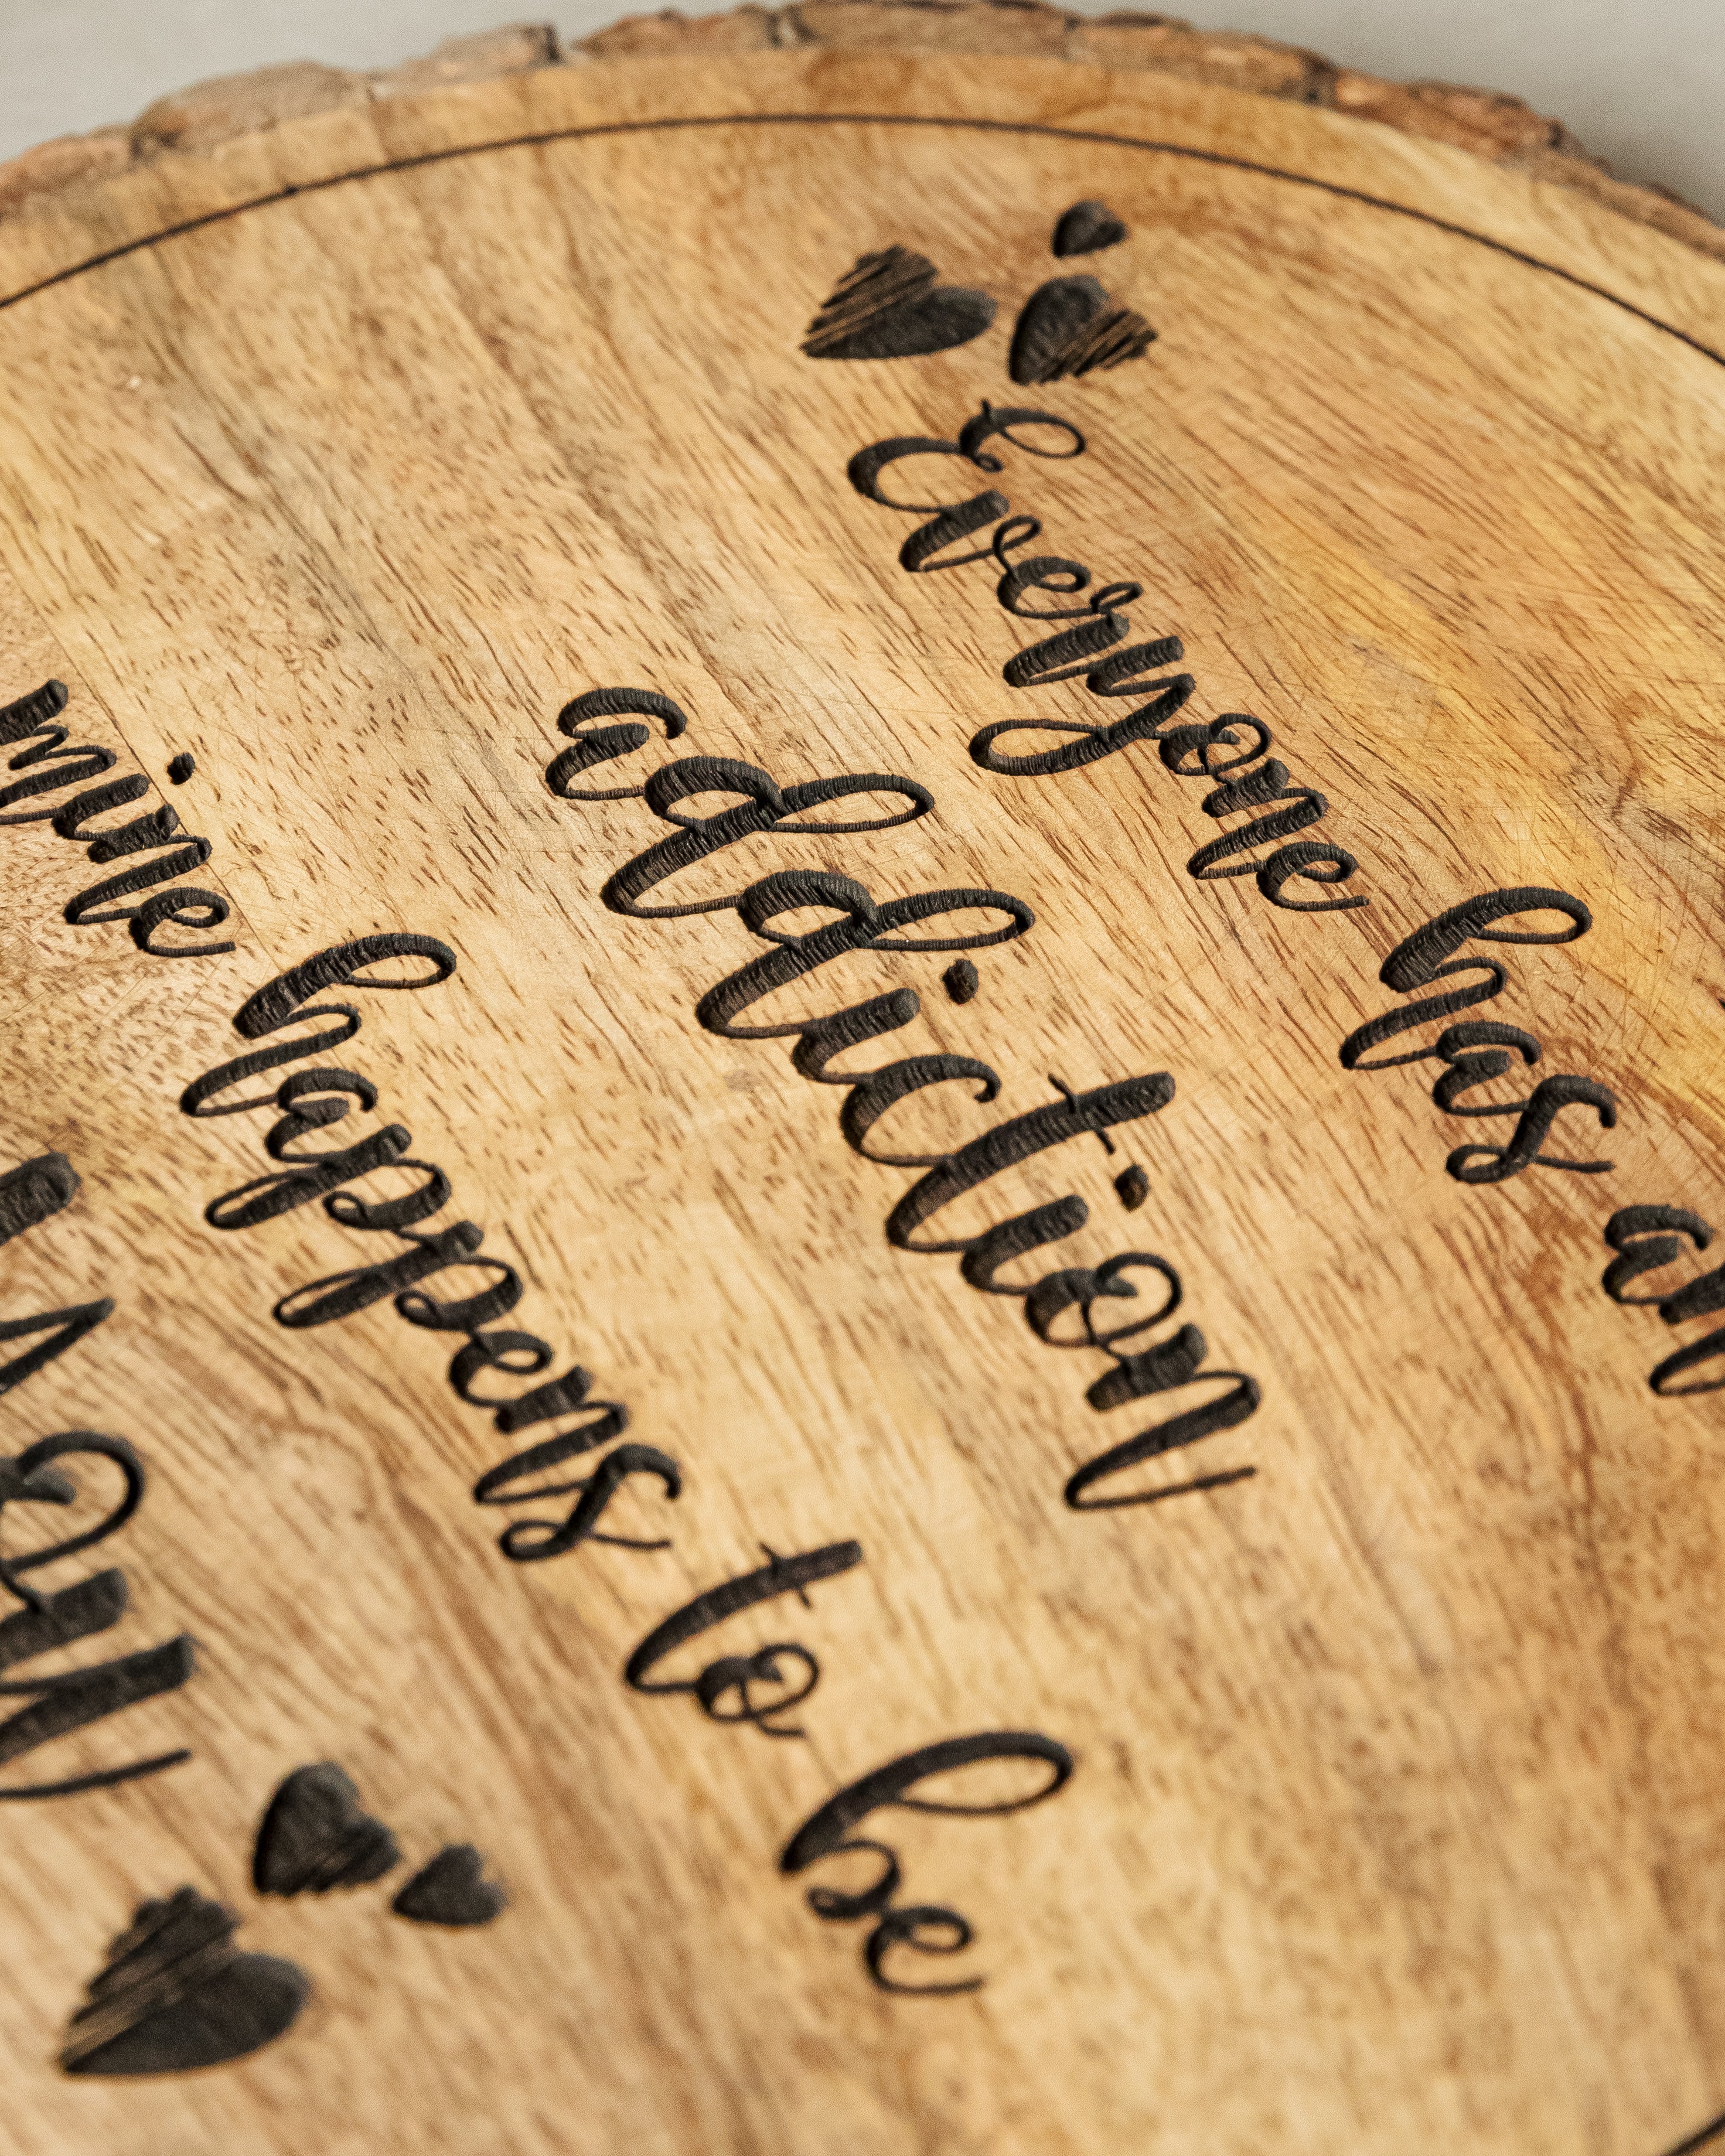 Everyone has an
addiction
mine happens to be